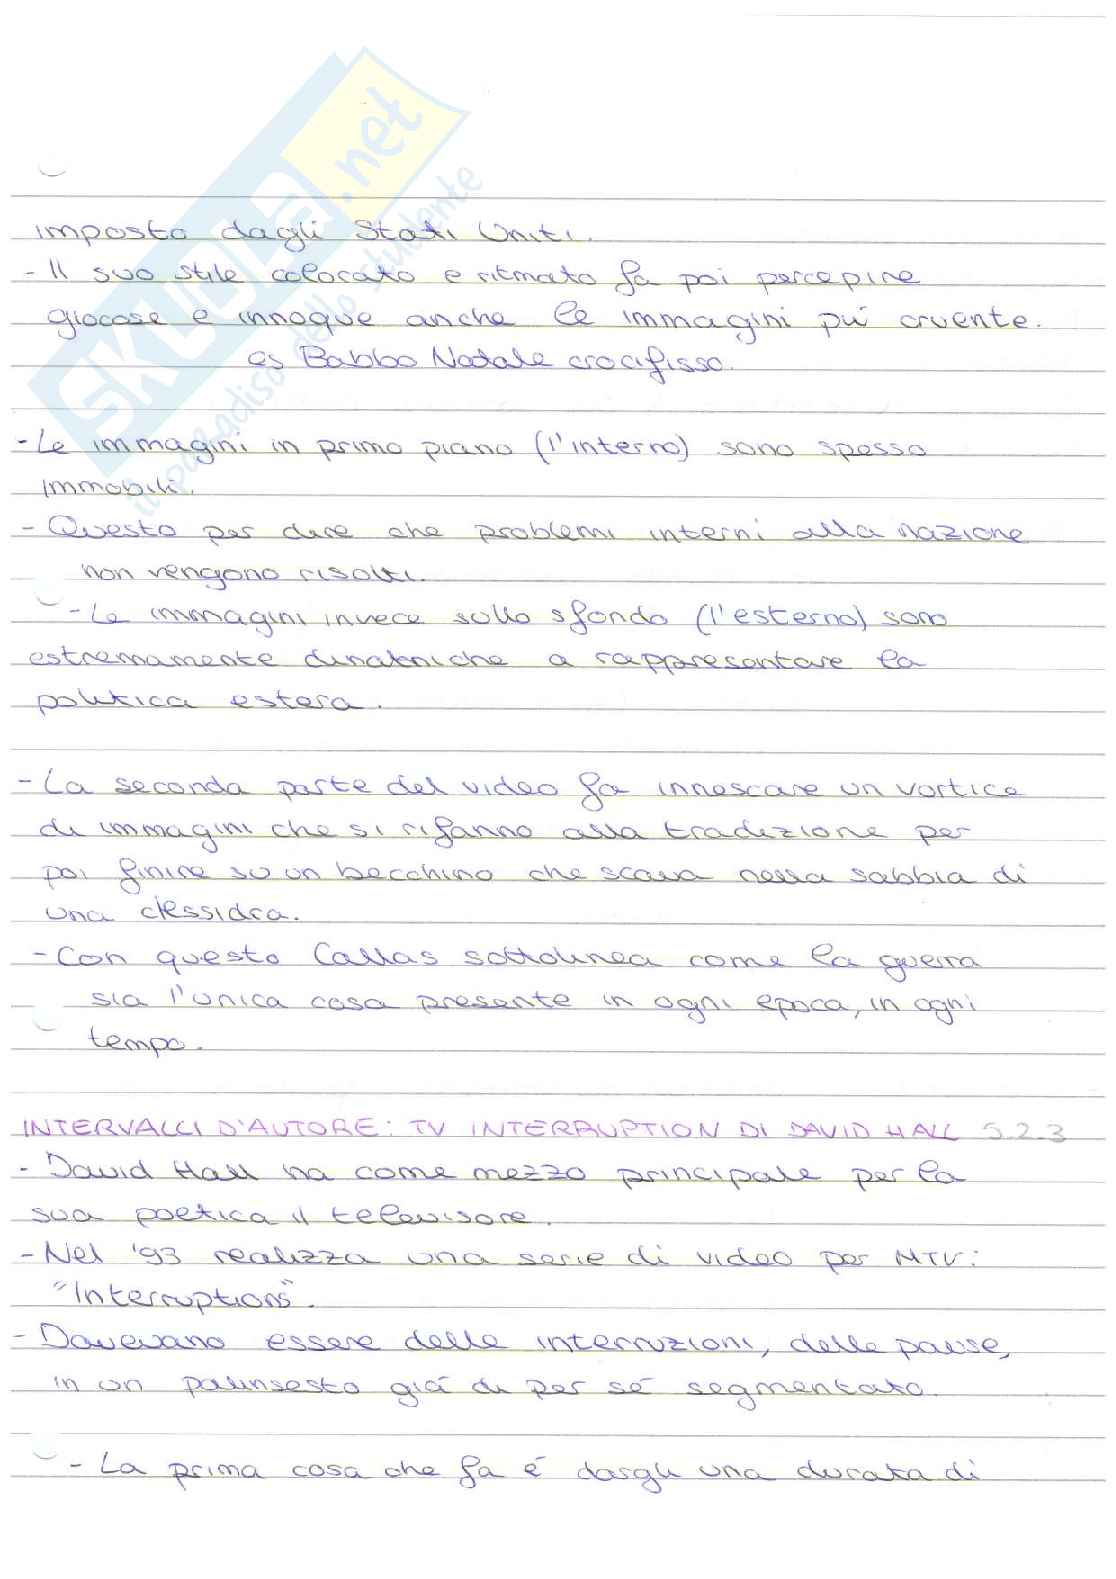 SKUOLA.net
il paradiso dello studente
imposto dagli Stati Uniti.
- Il suo stile colorato e ritmato fa poi percepire
giocose e innoque anche le immagini piu' cruente.
es Babbo Natale crocifisso.
- Le immagini in primo piano (l'interno) sono spesso
immobili.
- Questo per dire che problemi interni alla nazione
non vengono risolti.
- Le immagini invece sullo sfondo (l'esterno) sono
estremamente dinamiche a rappresentare la
politica estera.
- La seconda parte del video fa innescare un vortice
di immagini che si rifanno alla tradizione per
poi finire su un becchino che scava nella sabbia di
una clessidra.
- Con questo Callas sottolinea come la guerra
sia l'unica cosa presente in ogni epoca, in ogni
tempo.
INTERVALLI D'AUTORE: TV INTERRUPTION DI DAVID HALL 5.2.3
- David Hall ha come mezzo principale per la
sua poetica il televisore.
- Nel '93 realizza una serie di video per MTV:
"Interruptions".
- Dovevano essere delle interruzioni, delle pause,
in un palinsesto giá di per sé segmentato.
- La prima cosa che fa é dargli una durata di